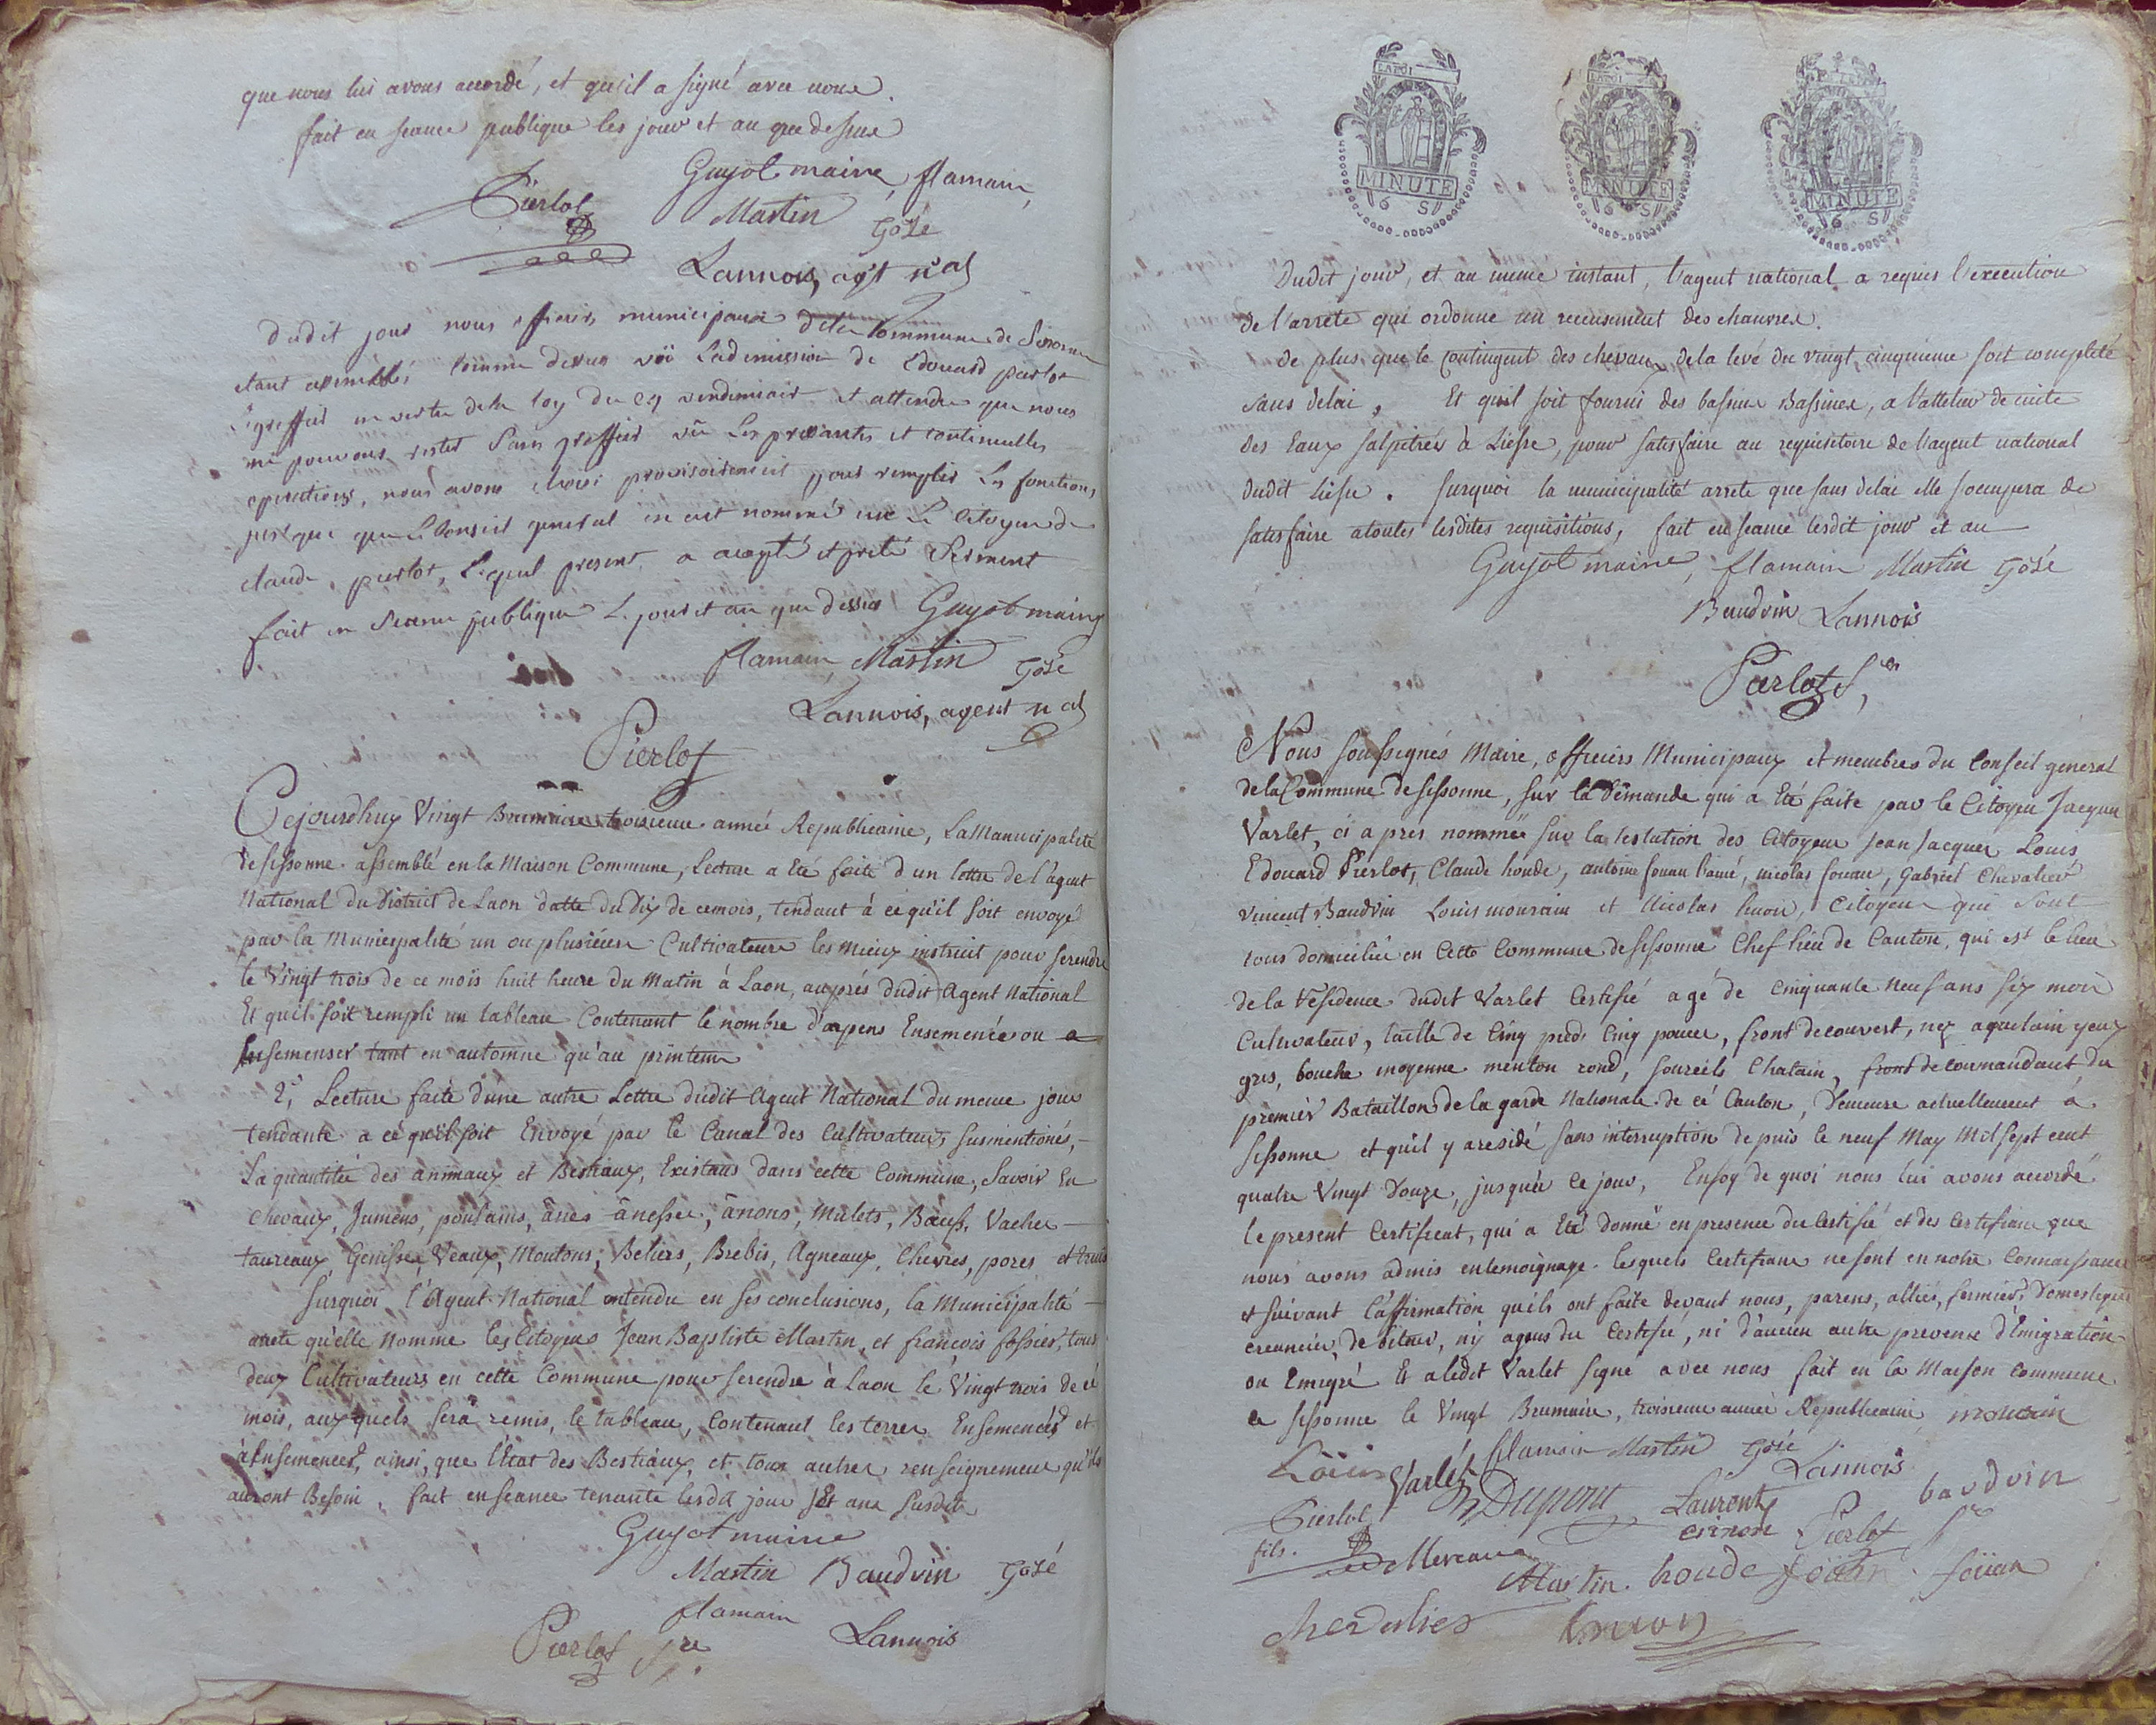 que nous lui avons accordé, et qu'il a signé avec nous.
fait en seance publique les jour et an que dessus
Guyot maire, flamain,
Pierlot Martin Gosé
Lannois, agt nal
Dudit jour nous officiers municipaux dela Commune de Sissonne
etant assemblés comme dessus vû Ladimission de Edouard pierlot
greffier en vertu dela loy du 29 vendimiair et attendu que nous
ne pouvons rester sans greffier vû Les presantes et continuelles
operations, nous avons choisi provisoirement pour remplir Les fonctions
jusque que Le Conseil general en eut nommé un Le Citoyen
claude pierlot, Lequel present a accepté et preté Serment
fait en Seance publique L. jour et an que dessus Guyot maire
flamain, Martin Gosé
Lannois, agent nal
Pierlot
Cejourdhuy Vingt Brumaire troisieme année Republicaine, La Manucipalité
de sissonne assemblé en la Maison Commune, Lecture a Eté faite d'un lettre de L'agent
National du District de Laon datte du Dix de cemois, tendant à ce qu'il soit envoyé
par la Municipalité un ou plusiéurs Cultivateurs les mieux instruit pour serendre
le Vingt trois de ce mois huit heure du Matin à Laon, auprés dudit Agent National
Et quil soit rempli un tableau Contenant le nombre d'arpens Ensemencés ou a
Ensemenser tant en automne qu'au printems
2°, Lecture faite d'une autre Lettre dudit Agent National du meme jour
tendante a ce qu'il soit Envoyé par le Canal des Cultivateurs susmentionés,
La quantitée des animaux et Bestiaux, Existans dans cette Commune, Savoir En
Chevaux, Jumens, poulains, ânes ânesses, ânons, Mulets, Bœufs, Vaches
taureaux, Genisses, Veaux, Moutons, Beliers, Brebis, Agneaux, Chevres, porcs et truies
Surquoi l'Agent National entendu en ses conclusions, la Municipalité
arrete qu'elle nomme les Citoyens Jean Baptiste Martin, et françois fossier, tous
deux Cultivateurs en cette Commune pour serendre à Laon le Vingt trois de ce
mois, aux quels sera remis, le tableau, Contenant les terres Ensemencés et
à Ensemencer, ainsi, que l'Etat des Bestiaux, et tous autres renseignemens qu'ils
auront Besoin, fait en seance tenante lesdit jour Et ans susdits
Guyot maire
Martin Baudvin Gosé
flamain
Pierlot Sre Lannois
LA LOI
MINUTE
6 S
MINUTE
6 S
MINUTE
6 S
Dudit jour, et au meme instant, l'agent national a requis l'execution
de l'arreté qui ordonne un recensement des chanvres.
de plus que le contingent des chevaux dela levé du vingt cinquieme soit completé
sans delai, Et qu'il soit fourni des bassins Bassines, a l'attelier de cuite
des Eaux salpitrées à Liesse, pour satisfaire au requisitoire de l'agent national
dudit Liesse. surquoi la municipalité arrete que sans delai elle s'occupera de
satisfaire atoutes lesdites requisitions, fait en seance lesdit jour et an
Guyot maire, flamain Martin Gosé
Baudvin Lannois
Pierlot Sre
Nous soussignés Maire, officiers Municipaux et membres du Conseil general
dela Commune de sissonne, sur la Demande qui a Eté faite par le Citoyen Jacques
Varlet, ci apres nommé sur la testation des Citoyens Jean Jacques Louis
Edouard Pierlot, Claude houde, antoine fouan l'ainé, nicolas fouan, Gabriel Chevalier
vincent Baudvin Louis mourain et Nicolas huon, Citoyens qui sont
tous domiciliés en Cette Commune de sissonne Chef lieu de Canton, qui est le lieu
de la Residence dudit Varlet Certifié agé de Cinquante Neuf ans six mois
Cultivateur, taille de Cinq pieds Cinq pouces, front decouvert, nez aquelain yeux
gris, bouche moyenne menton rond, sourcils Chatain, front de commandant du
premier Bataillon de la garde Nationale de cé Canton, Demeure actuellement à
sissonne et qu'il y aresidé sans interruption depuis le neuf May Mil sept cent
quatre Vingt Douze, jusqu'à ce jour, Enfoy de quoi nous lui avons accordé
le present Certificat, qui a Eté donné en presence du Certifié et des Certifians que
nous avons admis entemoignage. lesquels Certifians nesont en notre Connaissance
et suivant l'affirmation qu'ils ont faite devant nous, parens, alliés, fermiers, Domestiques
creanciers, debiteur, ny agens du Certifié, ni d'aucun autre prevenu d'Emigration
ou Emigré Et aledit Varlet signé avec nous fait en la Maison Commune
de sissonne le Vingt Brumaire, troisieme année Republicaine mourain
Varlet flamain Martin Gosé Lannois
Pierlot fils. Dupont Laurent Crinon Pierlot Sre baudvin
Mereaux Martin houde fouan fouan
chevalier huon